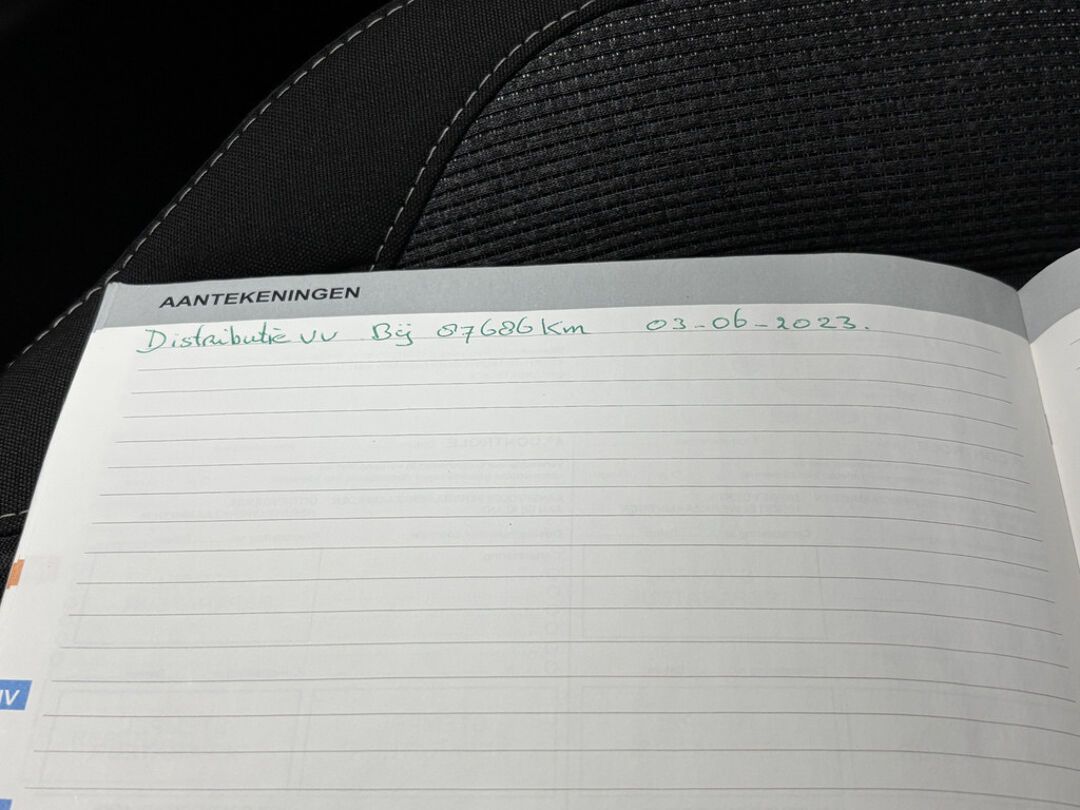 AANTEKENINGEN
Distributie vv Bij 87686 Km 03-06-2023.
IV